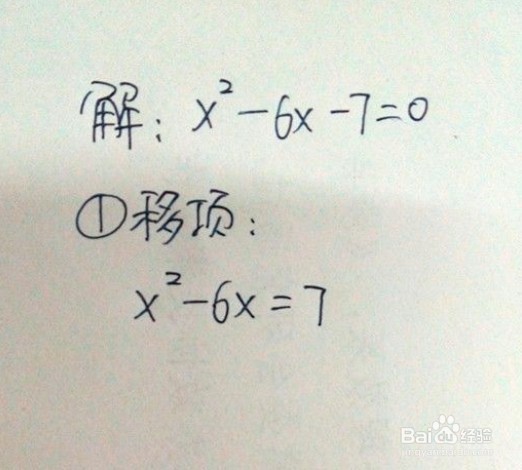 解：x²－6x－7＝0
①移项：
x²－6x＝7
Baidu经验